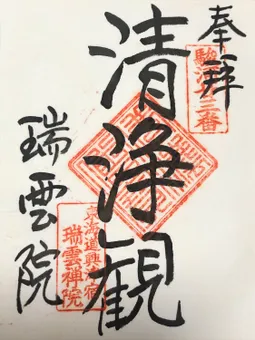 奉拝
清浄観
瑞雲院
東海道興津宿
瑞雲禅院